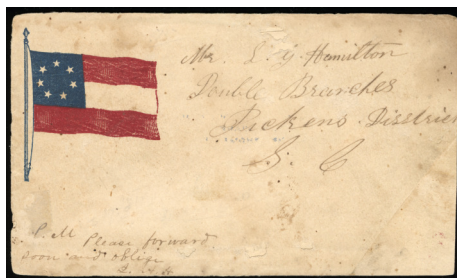 Mr. L G Hamilton
Double Branches
Pickens District
S. C
P. M Please forward
soon and oblige